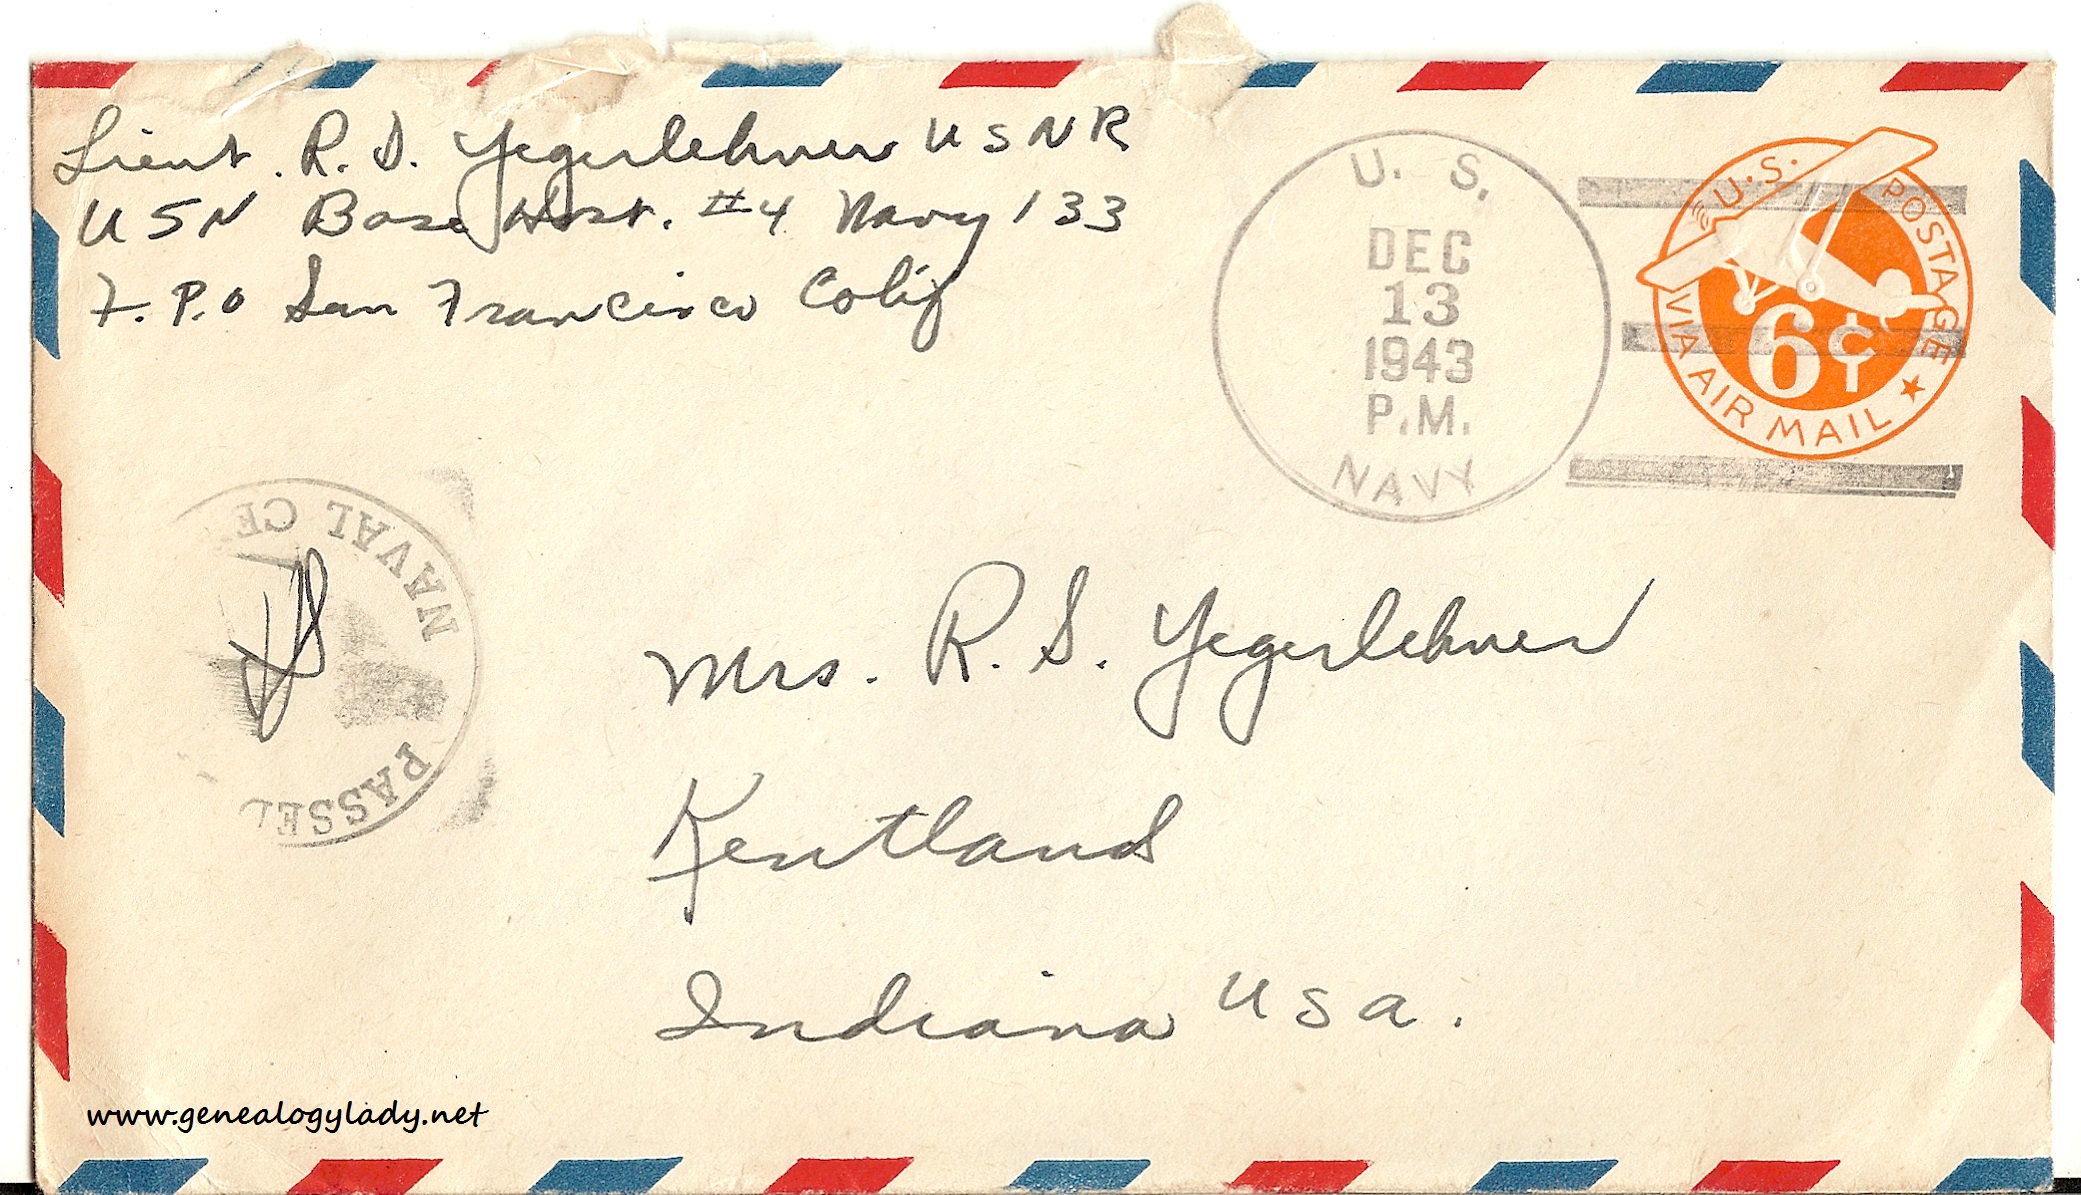 Lieut. R. S. Yegerlehner USNR
USN Base Hosp. #4 Navy 133
F. P.O San Francisco Calif
U. S.
DEC
13
1943
P.M.
NAVY
U.S. POSTAGE
6¢
VIA AIR MAIL
NAVAL CE
PASSE
Mrs. R. S. Yegerlehner
Kentland
Indiana USA.
www.genealogylady.net